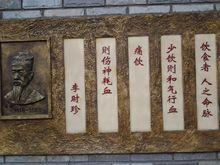 饮食者 人之命脉
少饮则和气行血
痛饮
则伤神耗血
李时珍